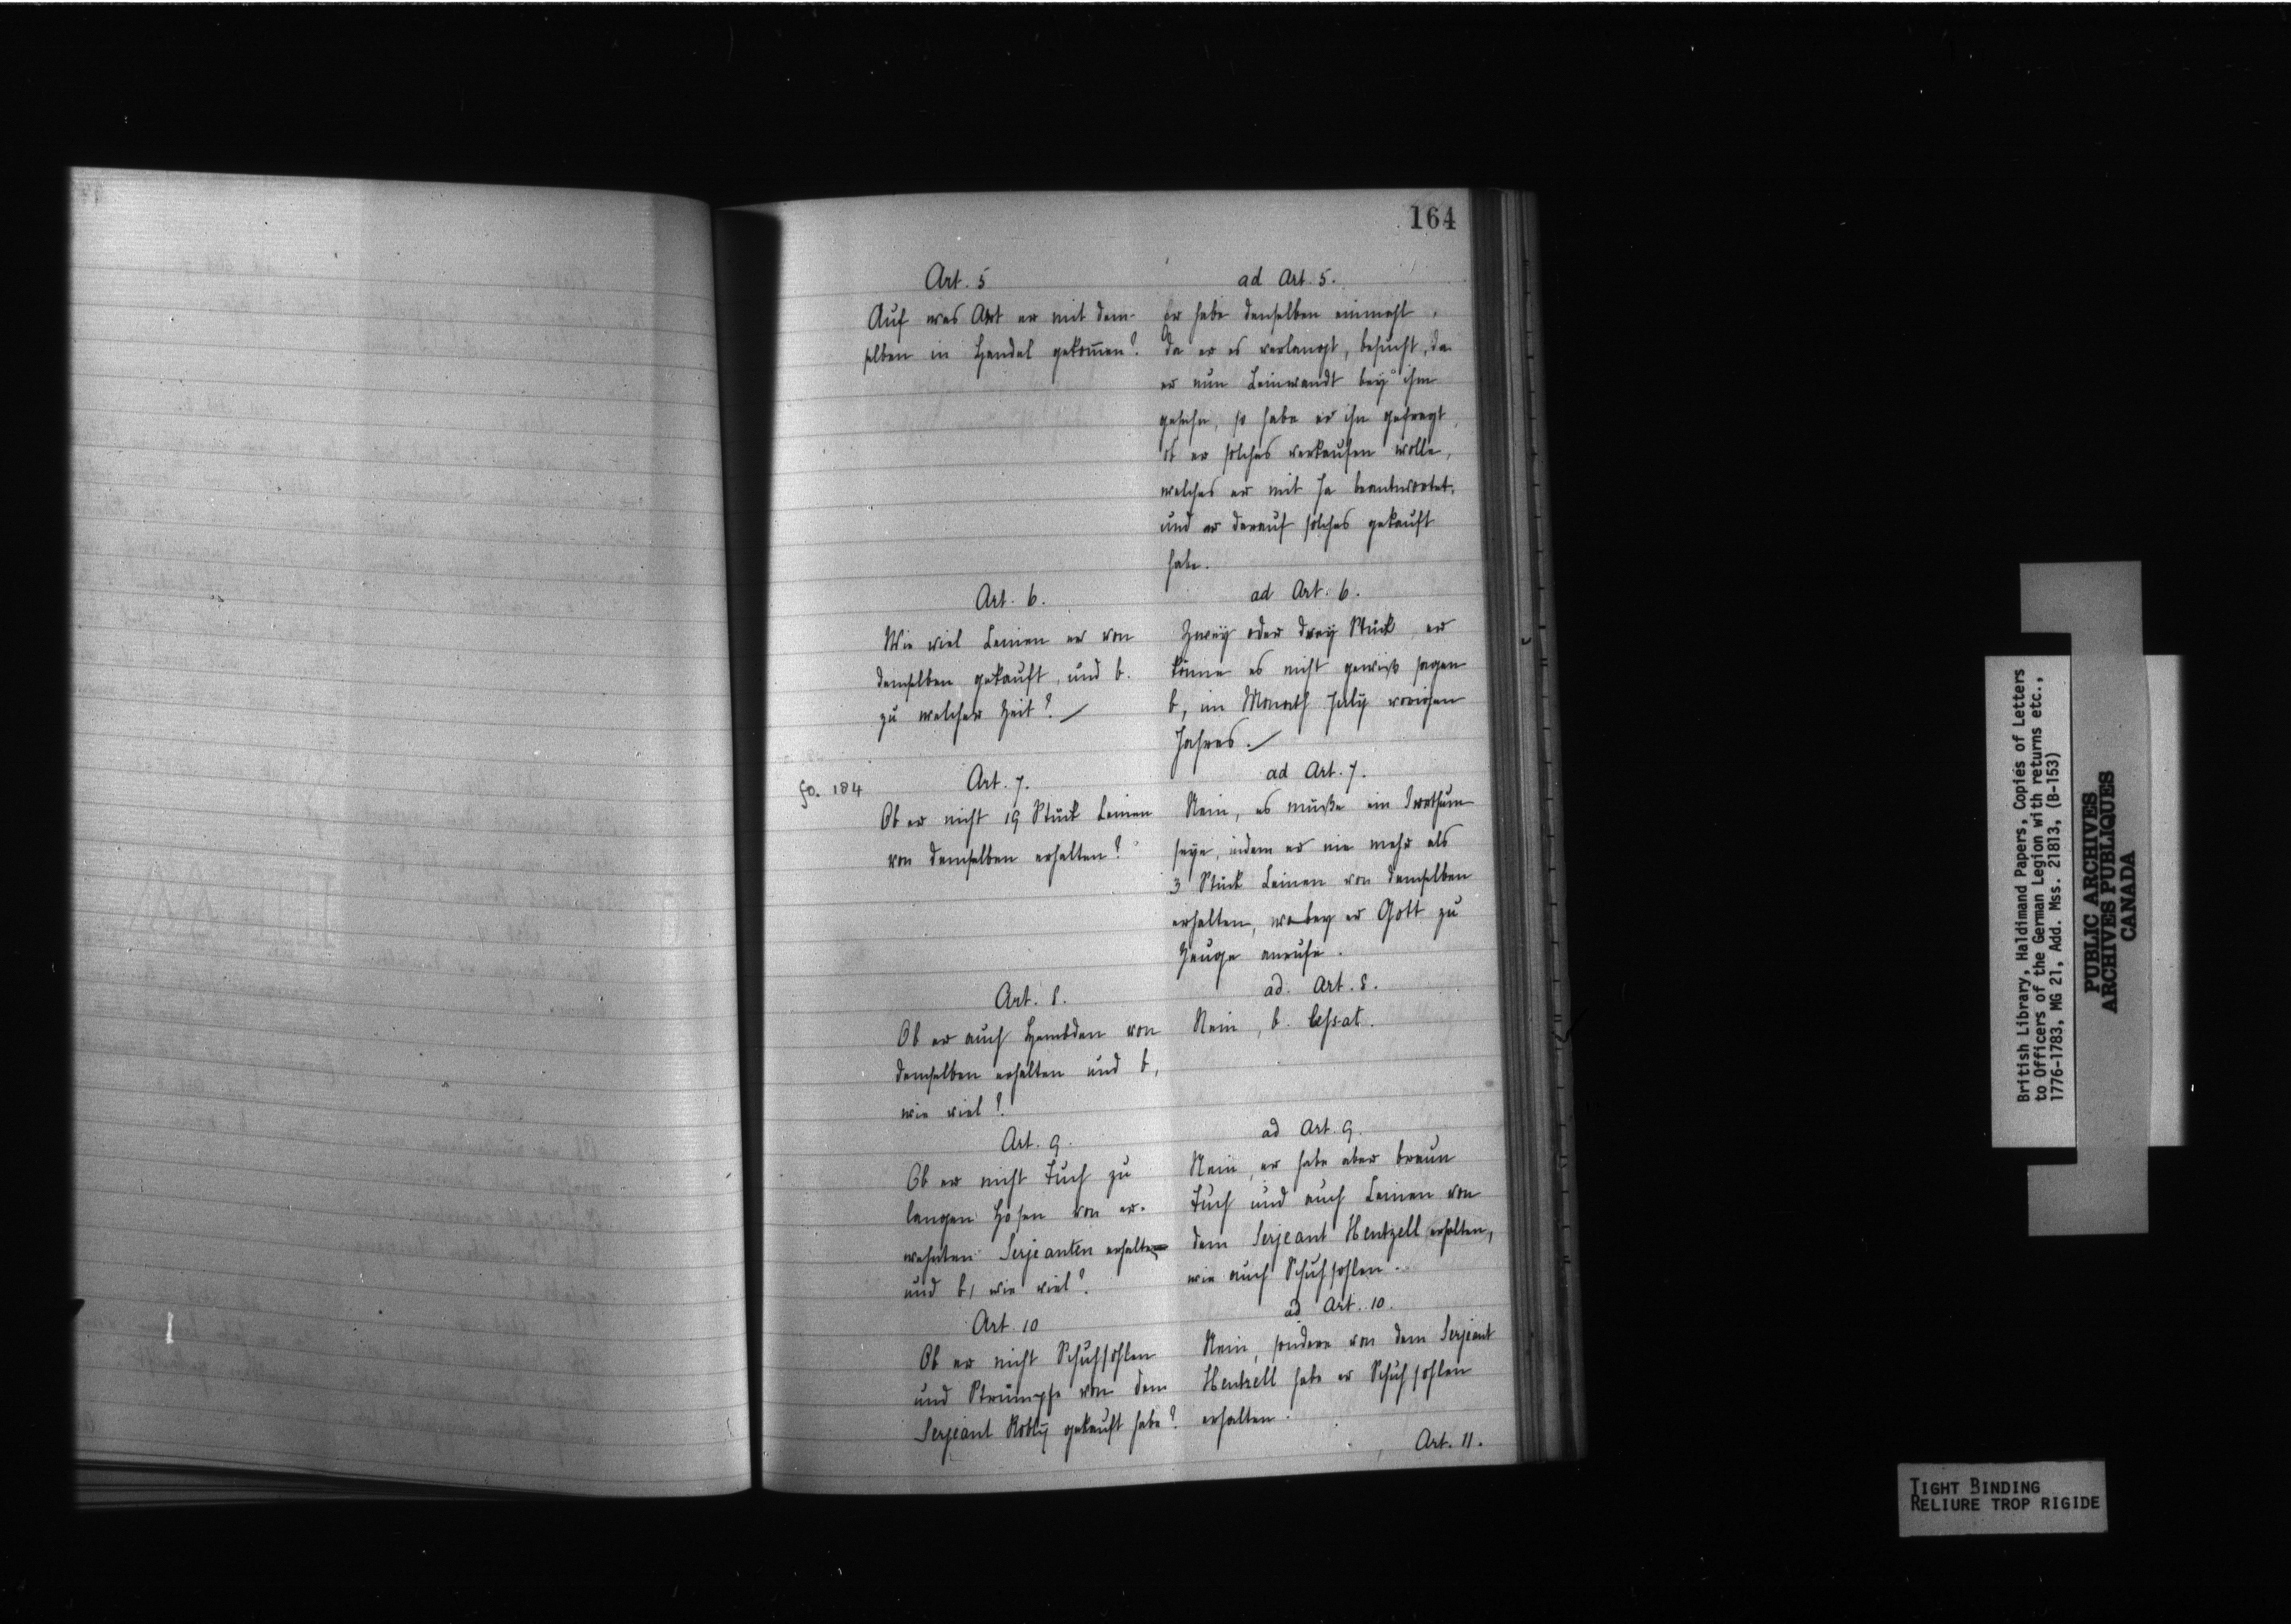 164
Art. 5
Auf was Art er mit dem-
selben in Handel gekom̄en?
ad Art. 5.
Er habe denselben einmahl,
da er es verlangt, besucht, da
er nun Leinwandt bey ihm
gesehn, so habe er ihn gefragt,
ob er solches verkaufen wolle,
welches er mit Ja beantwortet,
und er darauf solches gekauft
habe.
Art. 6.
Wie viel Leinen er von
demselben gekauft, und b.
zu welcher Zeit?
ad Art. 6.
Zwey oder drey Stück, er
könne es nicht gewiß sagen
b, im Monath July vorigen
Jahres.
fo. 184
Art. 7.
Ob er nicht 19 Stück Leinen
von demselben erhalten?
ad Art. 7.
Nein, es müße ein Irrthum
seye, indem er nie mehr als
3 Stück Leinen von demselben
erhalten, wobey er Gott zu
Zeuge anrufe.
Art. 8.
Ob er auch Hembden von
demselben erhalten und b,
wie viel?
ad. Art. 8.
Nein, b. cessat.
Art. 9.
Ob er nicht Tuch zu
langen Hosen von er-
wehnten Serjeanten erhalten
und b, wie viel?
ad Art. 9.
Nein, er habe aber braun
Tuch und auch Leinen von
dem Serjeant Hentzell erhalten,
wie auch Schuhsohlen.
Art. 10
Ob er nicht Schuhsohlen
und Strümpfe von dem
Serjeant gekauft habe?
ad Art. 10.
Nein, sondern von dem Serjeant
Hentzell habe er Schuhsohlen
erhalten.
Art. 11.
British Library, Haldimand Papers, Copies of Letters
to Officers of the German Legion with returns etc.,
1776-1783, MG 21, Add. Mss. 21813, (B-153)
PUBLIC ARCHIVES
ARCHIVES PUBLIQUES
CANADA
TIGHT BINDING
RELIURE TROP RIGIDE